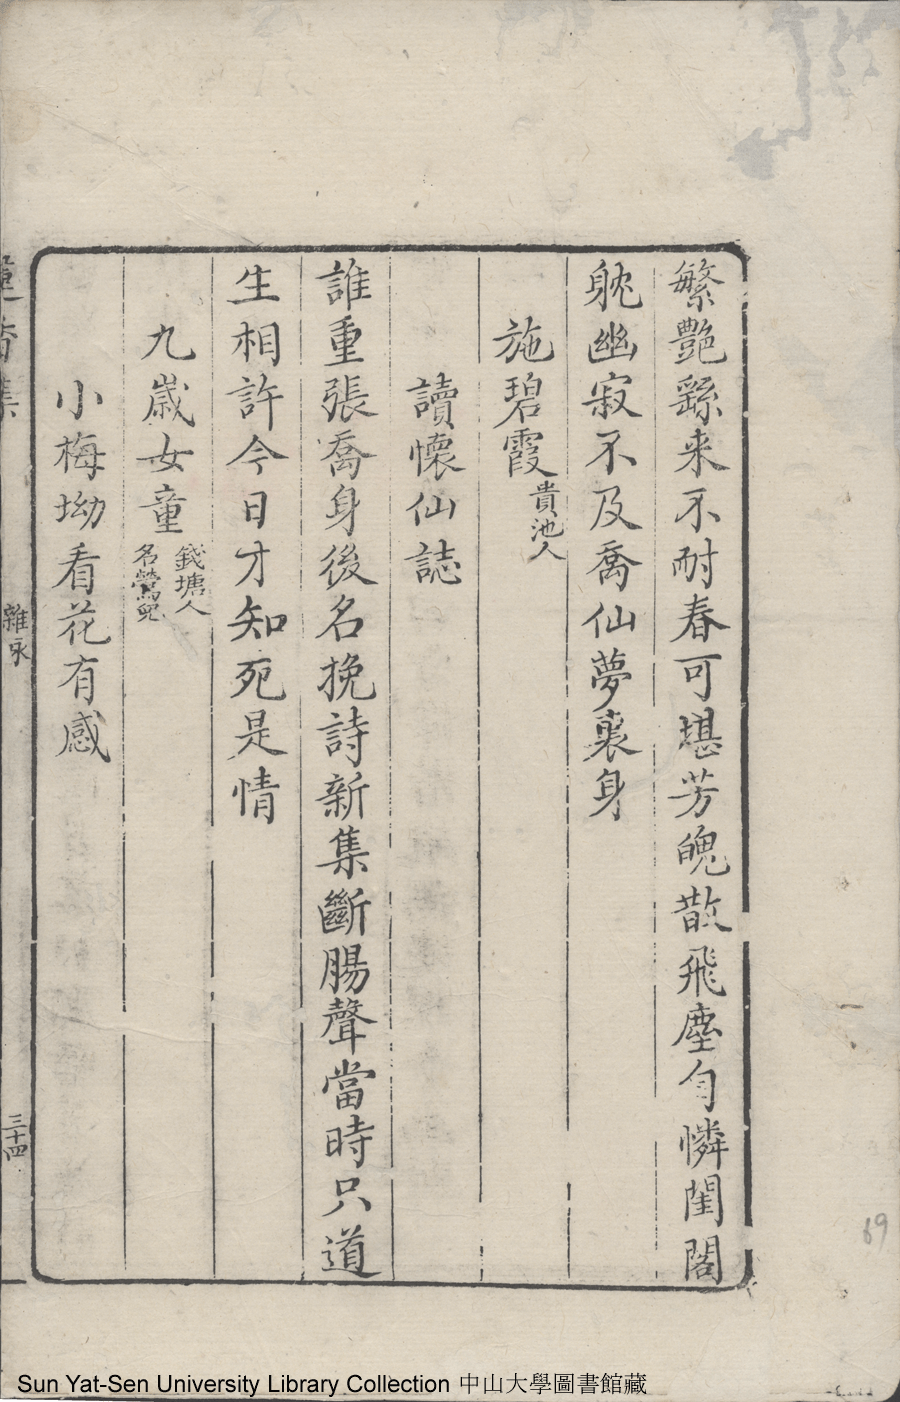 繁艷繇来不耐春可堪芳魄散飛塵自憐閨閣
躭幽寂不及喬仙夢裏身
施碧霞貴池人
讀懷仙誌
誰重張喬身後名挽詩新集斷腸聲當時只道
生相許今日才知死是情
九歲女童錢塘人
名鶯兒
小梅坳看花有感
蓮香集
雜咏
三十四
69
Sun Yat-Sen University Library Collection 中山大學圖書館藏